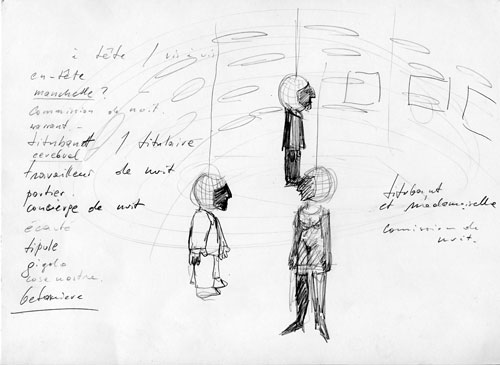 à tête / vis à vis
en-tête
manchette ?
Commission de nuit.
warrant
titubant / titulaire
cerebral
travailleur de nuit
portier.
concierge de nuit
écarté
tipule
gigolo
cosa nostra.
betoniere
titubant
et mademoiselle
Comission de
nuit.